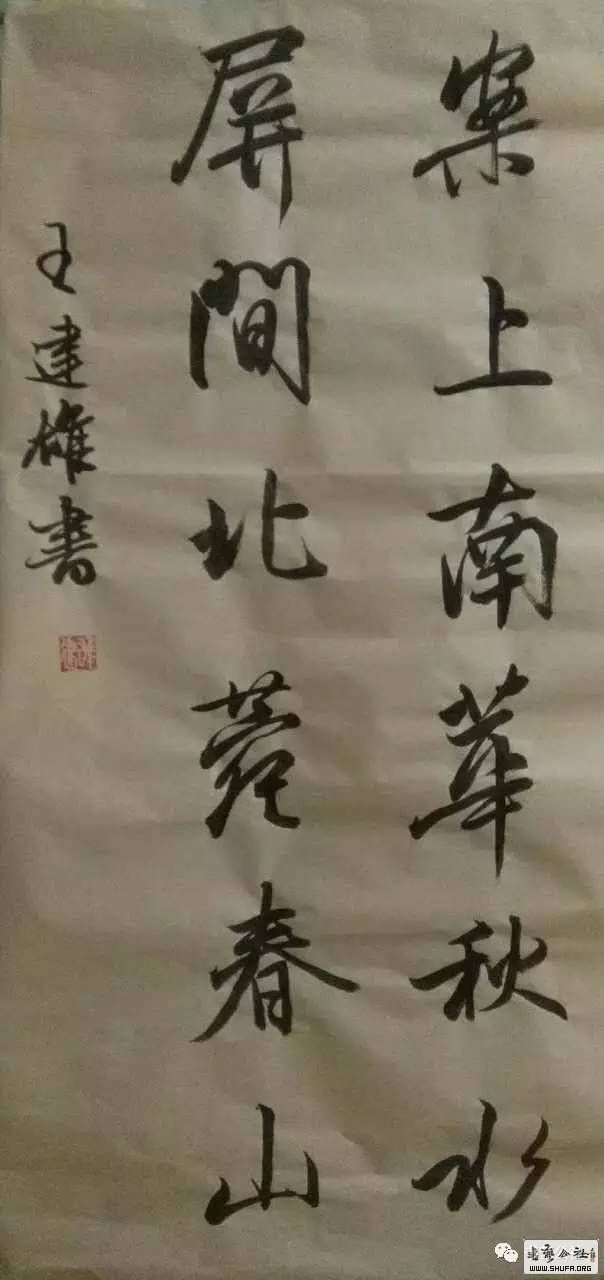 案上南華秋水
屏間北苑春山
王建雄書
書藝公社
WWW.SHUFA.ORG